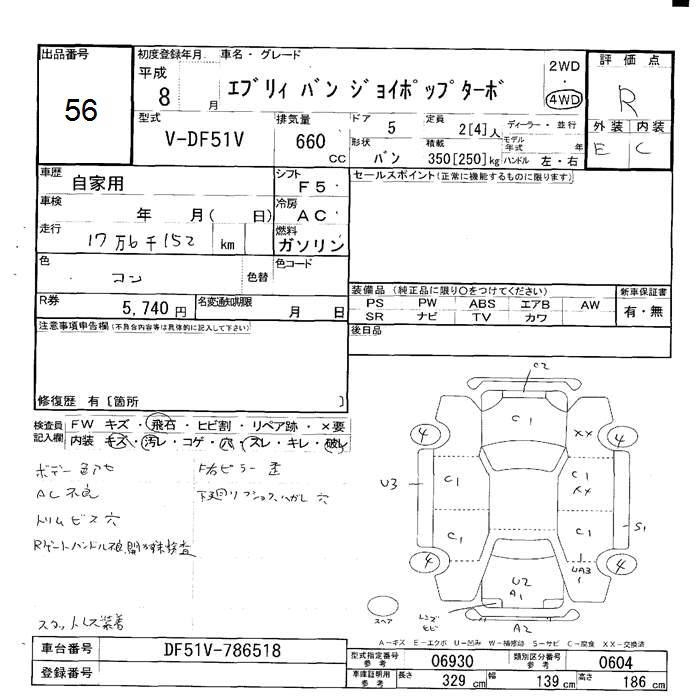 出品番号
56
初度登録年月
平成 8 月
車名・グレード
エブリィ バン ジョイポップターボ
2WD
・
4WD
評価点
R
型式
V-DF51V
排気量
660 CC
ドア 5
定員 2[4]人
ディーラー・並行
形状 バン
積載 350[250]kg
モデル年式 年
ハンドル 左・右
外装 内装
E C
車歴
自家用
シフト F5
車検
年 月( 日)
冷房 AC
走行
17万6千152 km
燃料 ガソリン
色
コン
色替
色コード
R券
5,740円
名変通知期限
月 日
セールスポイント(正常に機能するものに限ります)
装備品 (純正品に限り○をつけてください)
新車保証書
PS PW ABS エアB AW
SR ナビ TV カワ
有・無
注意事項申告欄(不具合内容等は具体的に記入して下さい)
後日品
修復歴 有[箇所 ]
検査員記入欄
FW キズ・飛石・ヒビ割・リペア跡・×要
内装 キズ・汚レ・コゲ・穴・スレ・キレ・破レ
ボデー色アセ
F右ピラー歪
AC不良
トリムビス穴
下廻リ
穴
スタットレス装着
C2
C1
XX
4
4
U3
C1
C1
XX
C1
C1
S1
4
4
U2
A1
UA3
A2
スペア
レンズ
ヒビ
A-キズ E-エクボ U-凹み W-補修跡 S-サビ C-腐食 XX-交換済
車台番号
DF51V-786518
登録番号
型式指定番号 参考
06930
類別区分番号 参考
0604
車庫証明用 参考
長さ 329 cm
幅 139 cm
高さ 186 cm